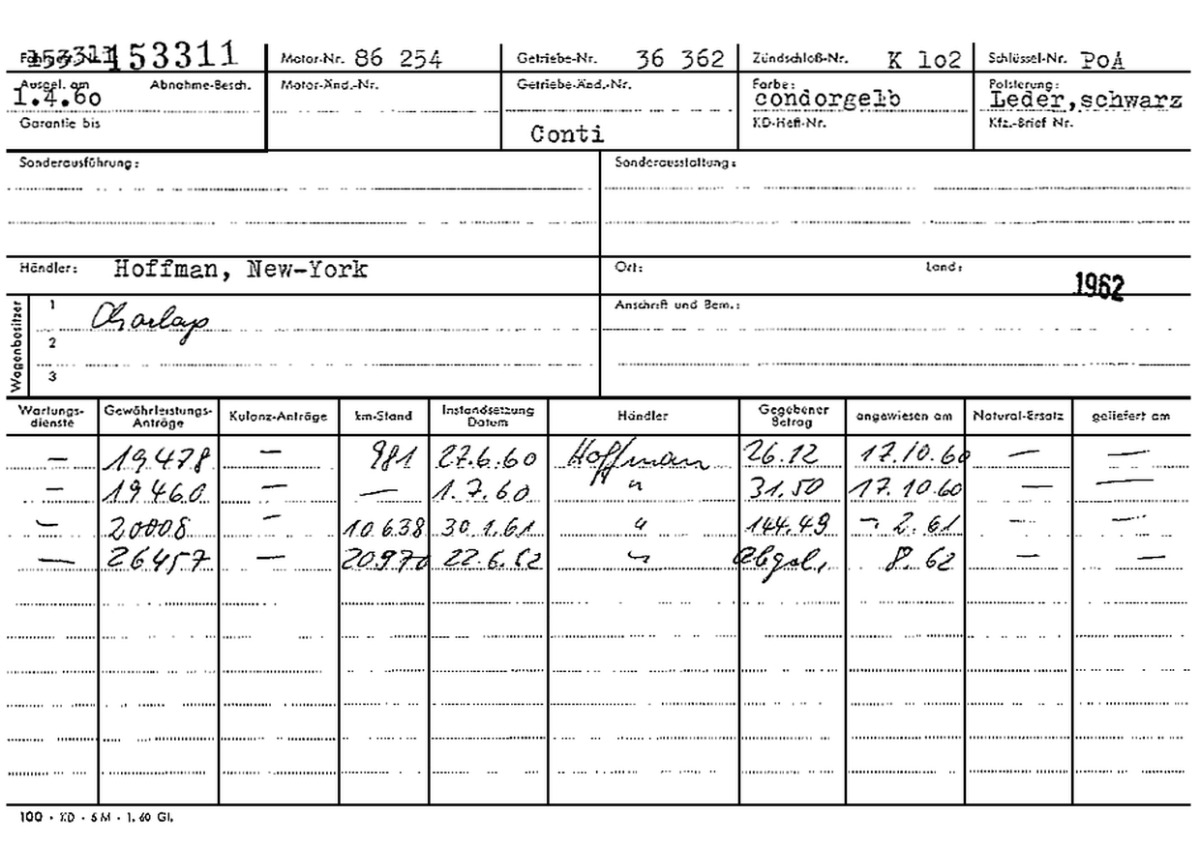 Fahrgest.-Nr. 153311 153311 Motor-Nr. 86 254 Getriebe-Nr. 36 362 Zündschloß-Nr. K 1o2 Schlüssel-Nr. PoA
Ausgel. am 1.4.6o Abnahme-Besch. Motor-Änd.-Nr. Getriebe-Änd.-Nr. Farbe: condorgelb Polsterung: Leder,schwarz
Garantie bis Conti KD-Heft-Nr. Kfz.-Brief Nr.
Sonderausführung: Sonderausstattung:
Händler: Hoffman, New-York Ort: Land: 1962
Wagenbesitzer
1 Charlap Anschrift und Bem.:
2
3
Wartungs- Gewährleistungs- Kulanz-Anträge km-Stand Instandsetzung Händler Gegebener angewiesen am Natural-Ersatz geliefert am
dienste Anträge Datum Betrag
— 19478 — 981 27.6.60 Hoffman 26.12 17.10.60 — —
— 19460 — — 1.7.60 " 31.50 17.10.60 — —
— 20008 — 10638 30.1.61 " 144.49 -. 2.61 — —
— 26457 — 20970 22.6.62 " abgel. 8.62 — —
100 · KD · 5M · 1.60 Gl.